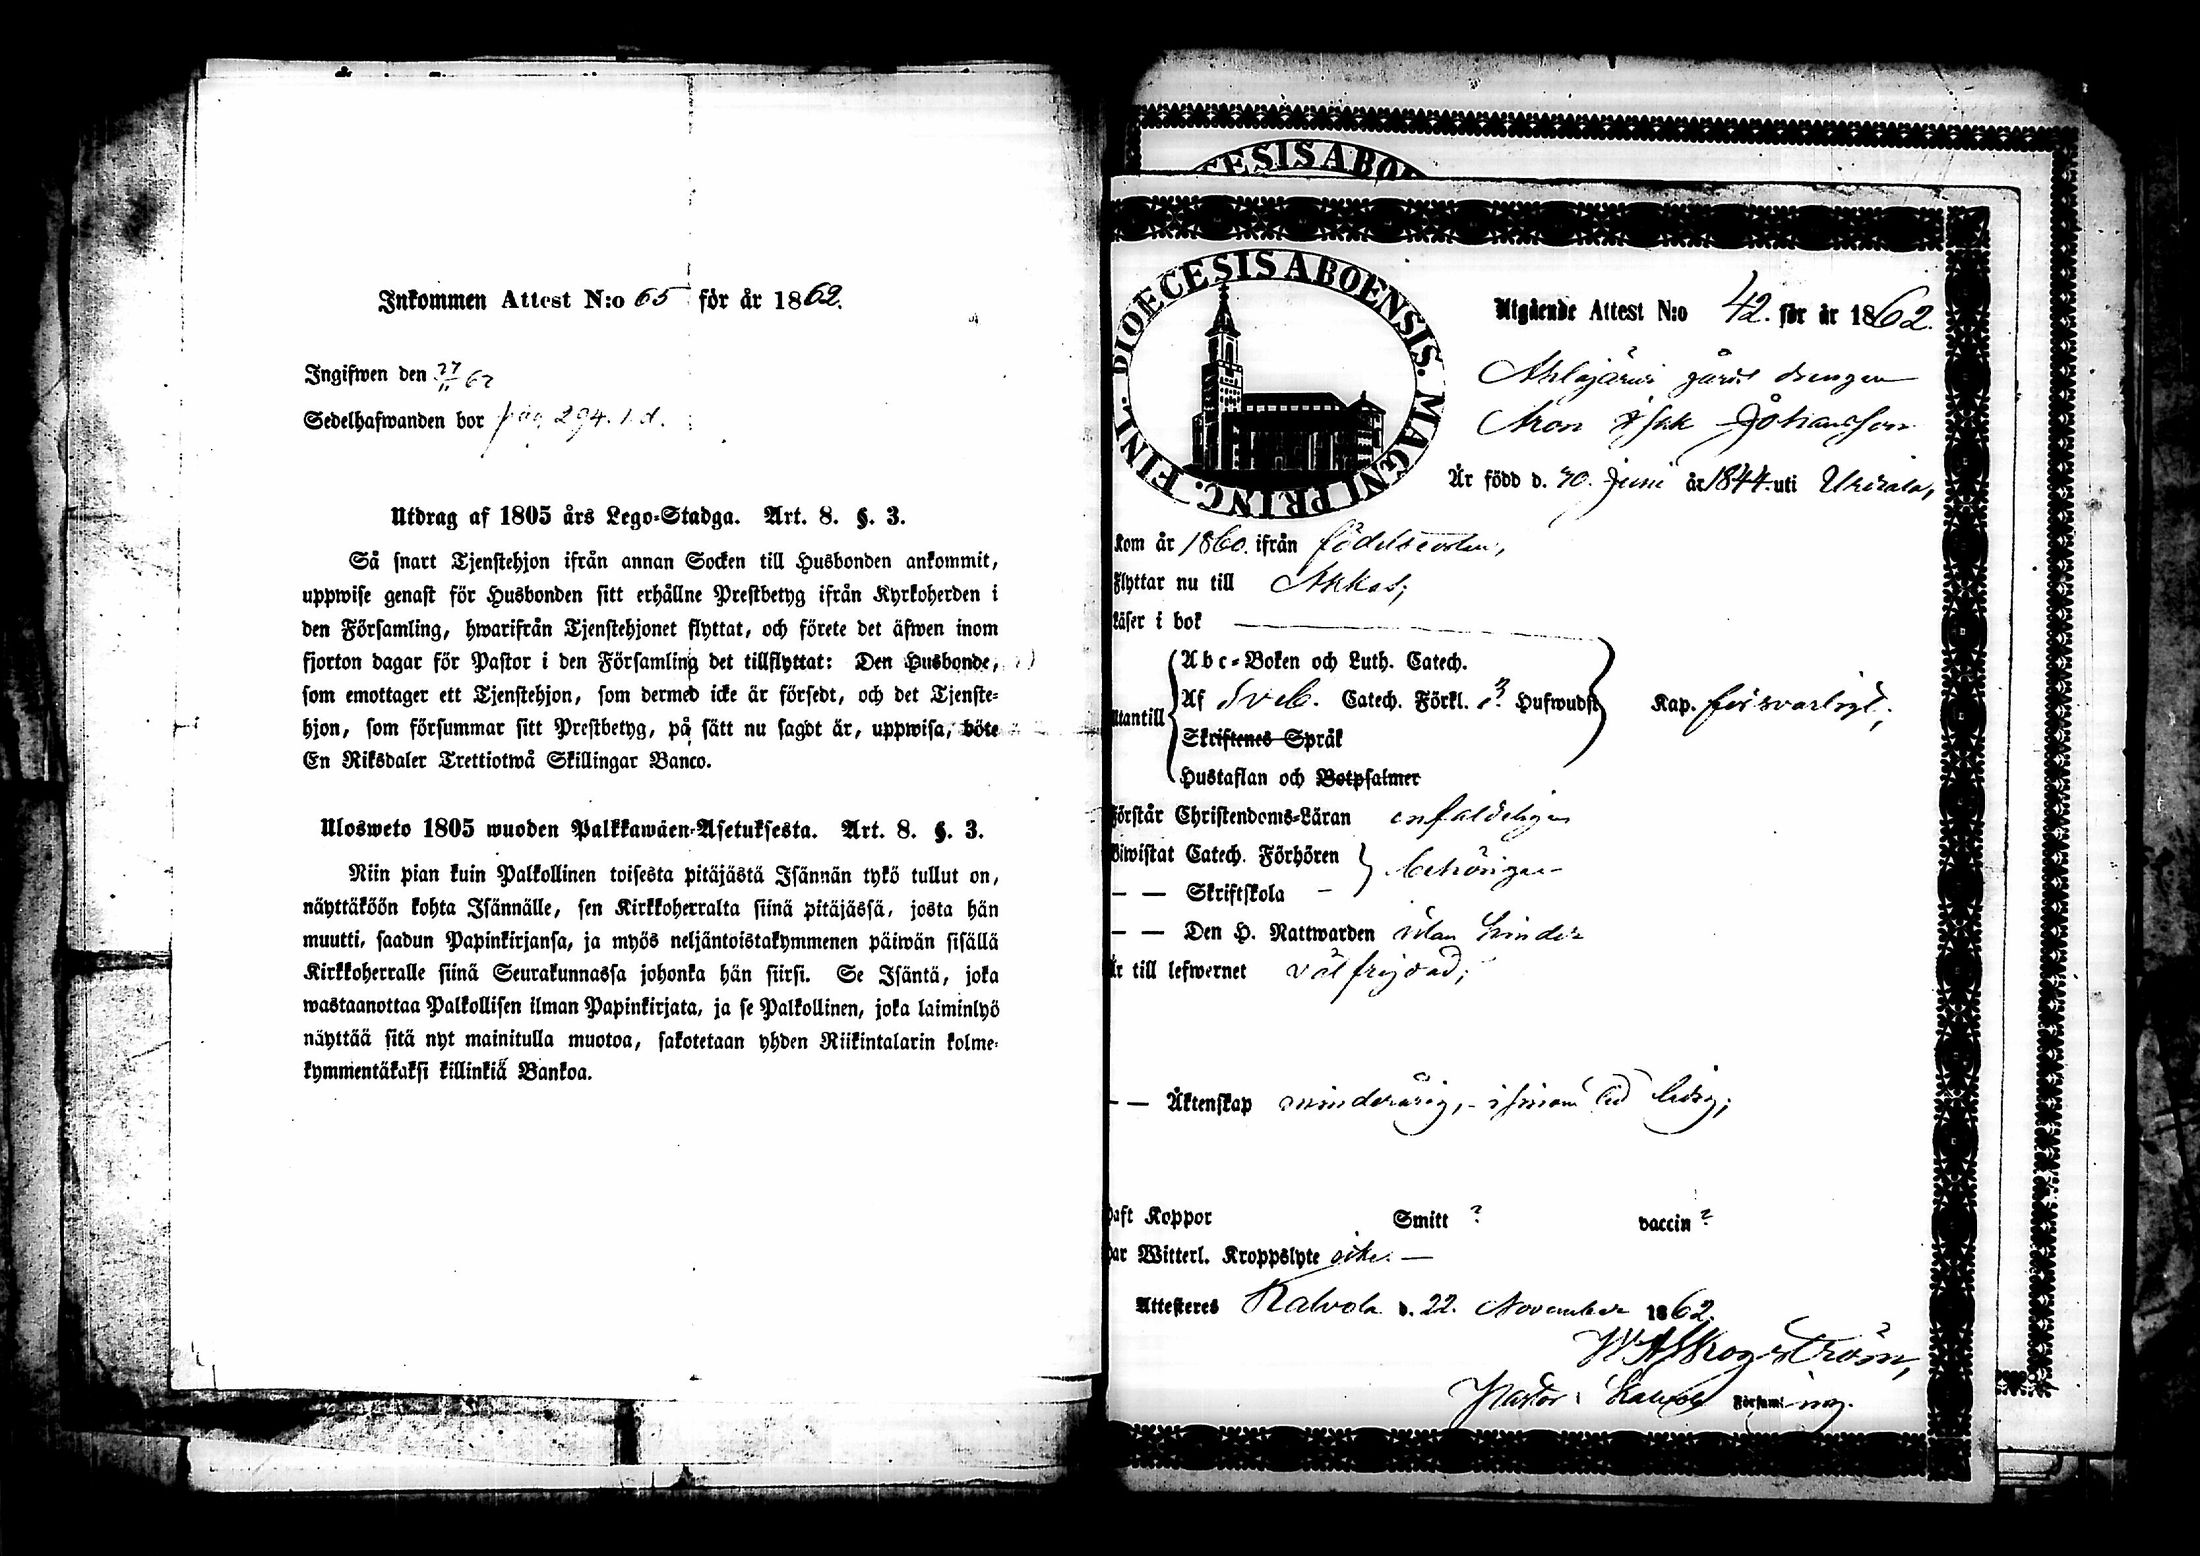 Inkommen Attest N:o 65 för år 1862.
Ingifwen den 27/11 62
Sedelhafwanden bor pag 294. 1. d.
Utdrag af 1805 års Lego-Stadga. Art. 8. §. 3.
Så snart Tjenstehjon ifrån annan Socken till Husbonden ankommit,
uppwise genast för Husbonden sitt erhållne Prestbetyg ifrån Kyrkoherden i
den Församling, hwarifrån Tjenstehjonet flyttat, och förete det äfwen inom
fjorton dagar för Pastor i den Församling det tillflyttat: Den Husbonde,
som emottager ett Tjenstehjon, som dermed icke är försedt, och det Tjenste-
hjon, som försummar sitt Prestbetyg, på sätt nu sagdt är, uppwisa, böte
En Riksdaler Trettiotwå Skillingar Banco.
Ulosweto 1805 wuoden Palkkawäen-Asetuksesta. Art. 8. §. 3.
Niin pian kuin Palkollinen toisesta pitäjästä Isännän tykö tullut on,
näyttäköön kohta Isännälle, sen Kirkkoherralta siinä pitäjässä, josta hän
muutti, saadun Papinkirjansa, ja myös neljäntoistakymmenen päiwän sisällä
Kirkkoherralle siinä Seurakunnassa johonka hän siirsi. Se Isäntä, joka
wastaanottaa Palkollisen ilman Papinkirjata, ja se Palkollinen, joka laiminlyö
näyttää sitä nyt mainitulla muotoa, sakotetaan yhden Riikintalarin kolme-
kymmentäkaksi killinkiä Bankoa.
ESIS ABO
DIOECESIS ABOENSIS. MAGNI PRINC. FINL.
Utgående Attest N:o 42. för år 1862.
drengen
Aron Isak Johansson
Är född d. 30. Juni år 1844 uti Urdiala,
kom år 1860. ifrån födelseorten,
Flyttar nu till Akkas;
Läser i bok
Abc-Boken och Luth. Catech.
Utantill Af Sveb. Catech. Förkl. i 3 Hufwudst Kap. försvarligt;
Skriftenes Språk
Hustaflan och Botpsalmer
Förstår Christendoms-Läran enfaldeligen
Biwistat Catech. Förhören behörigen
— — Skriftskola
— — Den H. Nattwarden utan hinder
Är till lefwernet välfrejdad;
— — Äktenskap minderårig,
haft Koppor Smitt ? vaccin ?
har Witterl. Kroppslyte icke. —
Attesteres Kalvola d. 22. November 1862.
W A Skogström,
Pastor i Kalvola Församling.